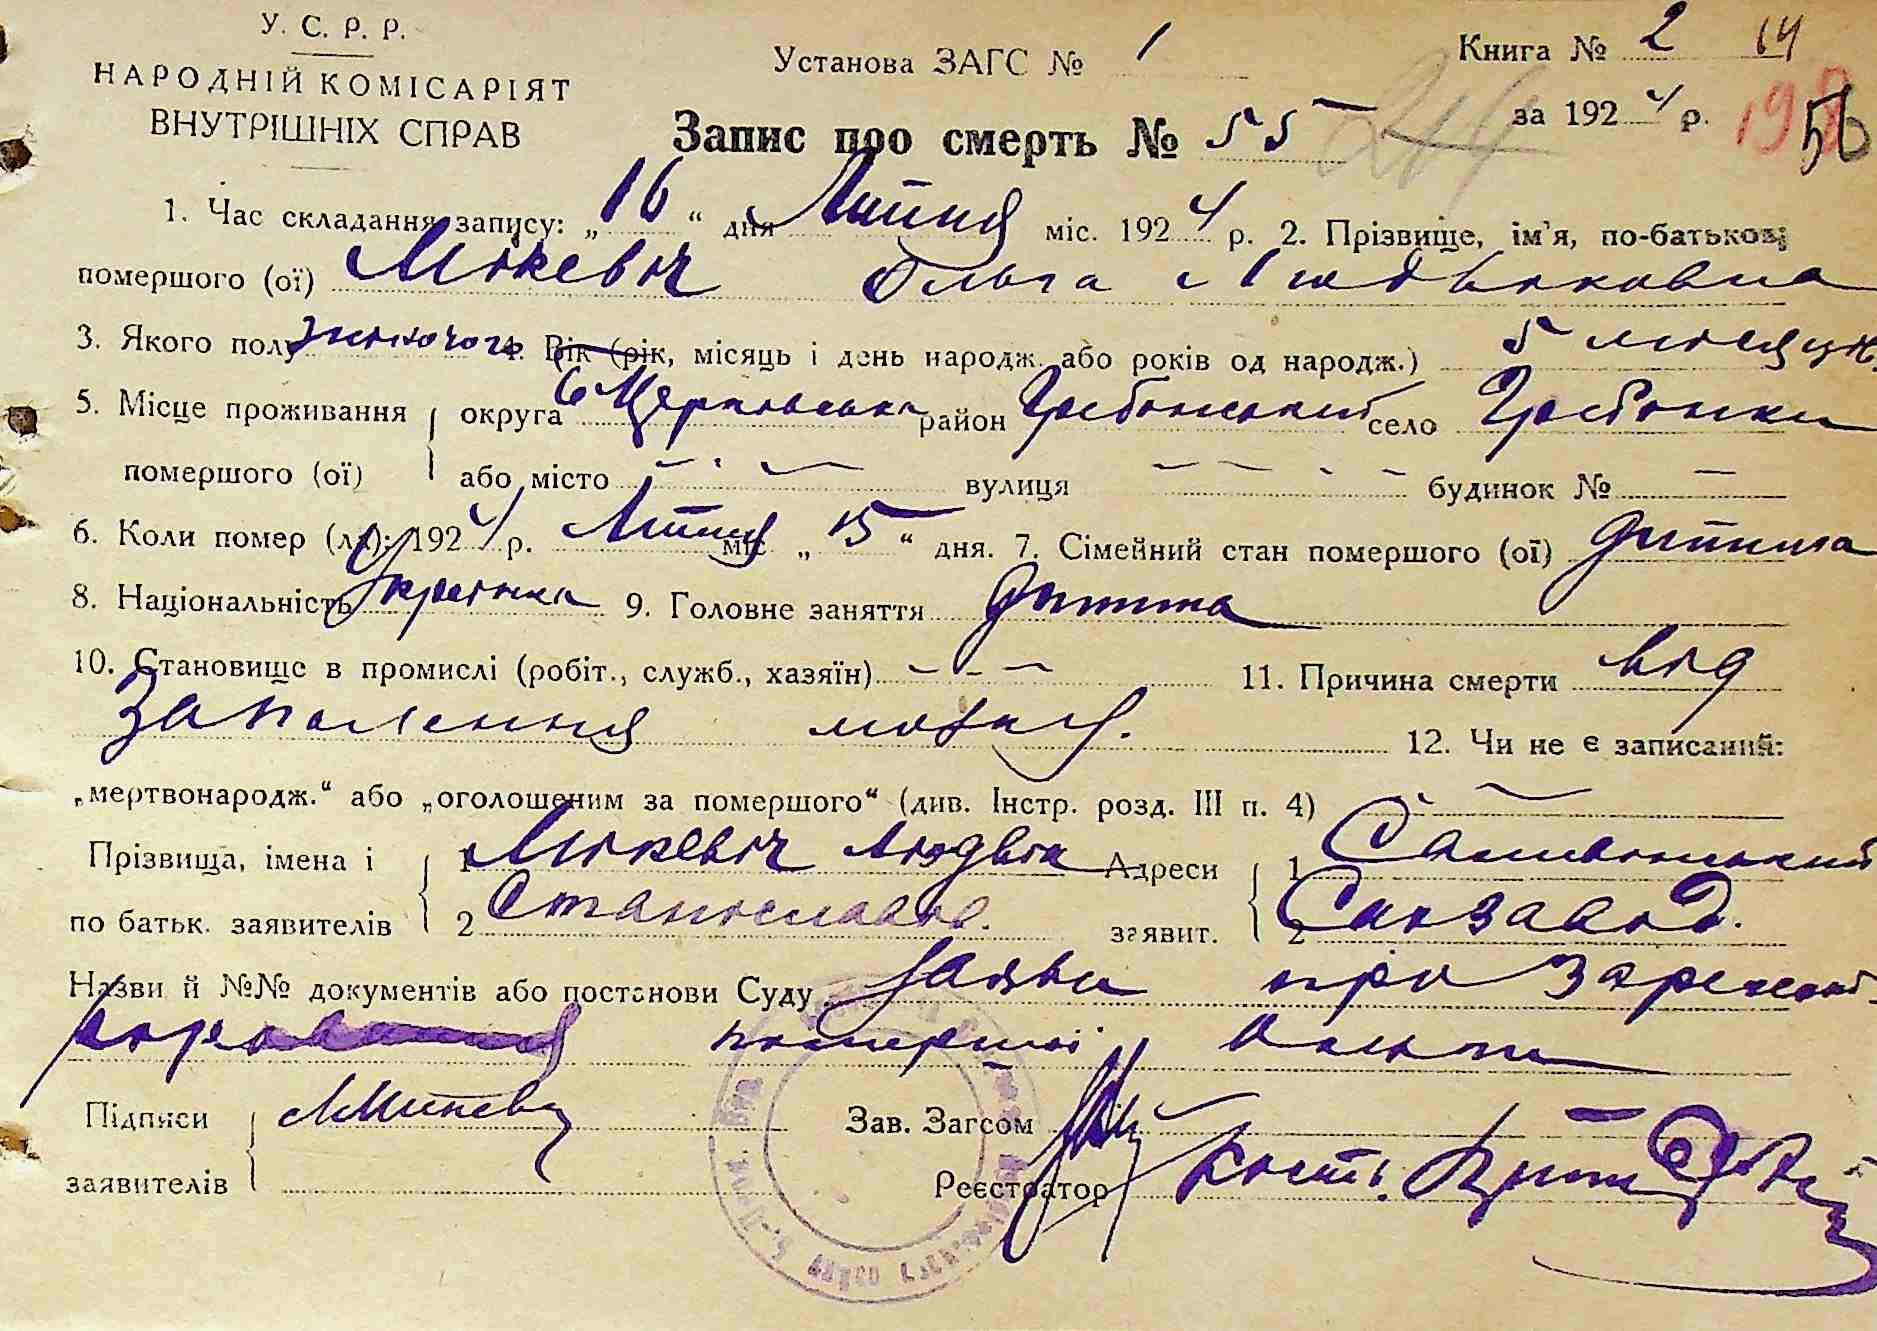 У. С. Р. Р.
НАРОДНІЙ КОМІСАРІЯТ
ВНУТРІШНІХ СПРАВ
Установа ЗАГС № 1
Книга № 2 14
за 1924 р. 56
Запис про смерть № 55 214
1. Час складання запису: „16“ дня Липня міс. 1924 р. 2. Прізвище, ім'я, по-батькові
помершого (ої) Мікевіч Ольга Людвіковна
3. Якого полу жіночого 4. Вік (рік, місяць і день народж. або років од народж.) 5 місяців
5. Місце проживання помершого (ої) округа Б Церковська район Гребінський село Гребінки
або місто вулиця будинок №
6. Коли помер (ла): 1924 р. Липня міс „15“ дня. 7. Сімейний стан помершого (ої) дитина
8. Національність Українка 9. Головне заняття дитина
10. Становище в промислі (робіт., служб., хазяїн) 11. Причина смерти від
запалення мозку.
12. Чи не є записаний:
„мертвонародж.“ або „оголошеним за помершого“ (див. Інстр. розд. III п. 4)
Прізвища, імена і по батьк. заявителів 1 Мікевіч Людвік Адреси заявит. 1 Саливонський
2 Станіславов. 2 Сахзавод.
Назви й №№ документів або постанови Суду Заява про
помершої
Підписи заявителів
Зав. Загсом
Реєстратор